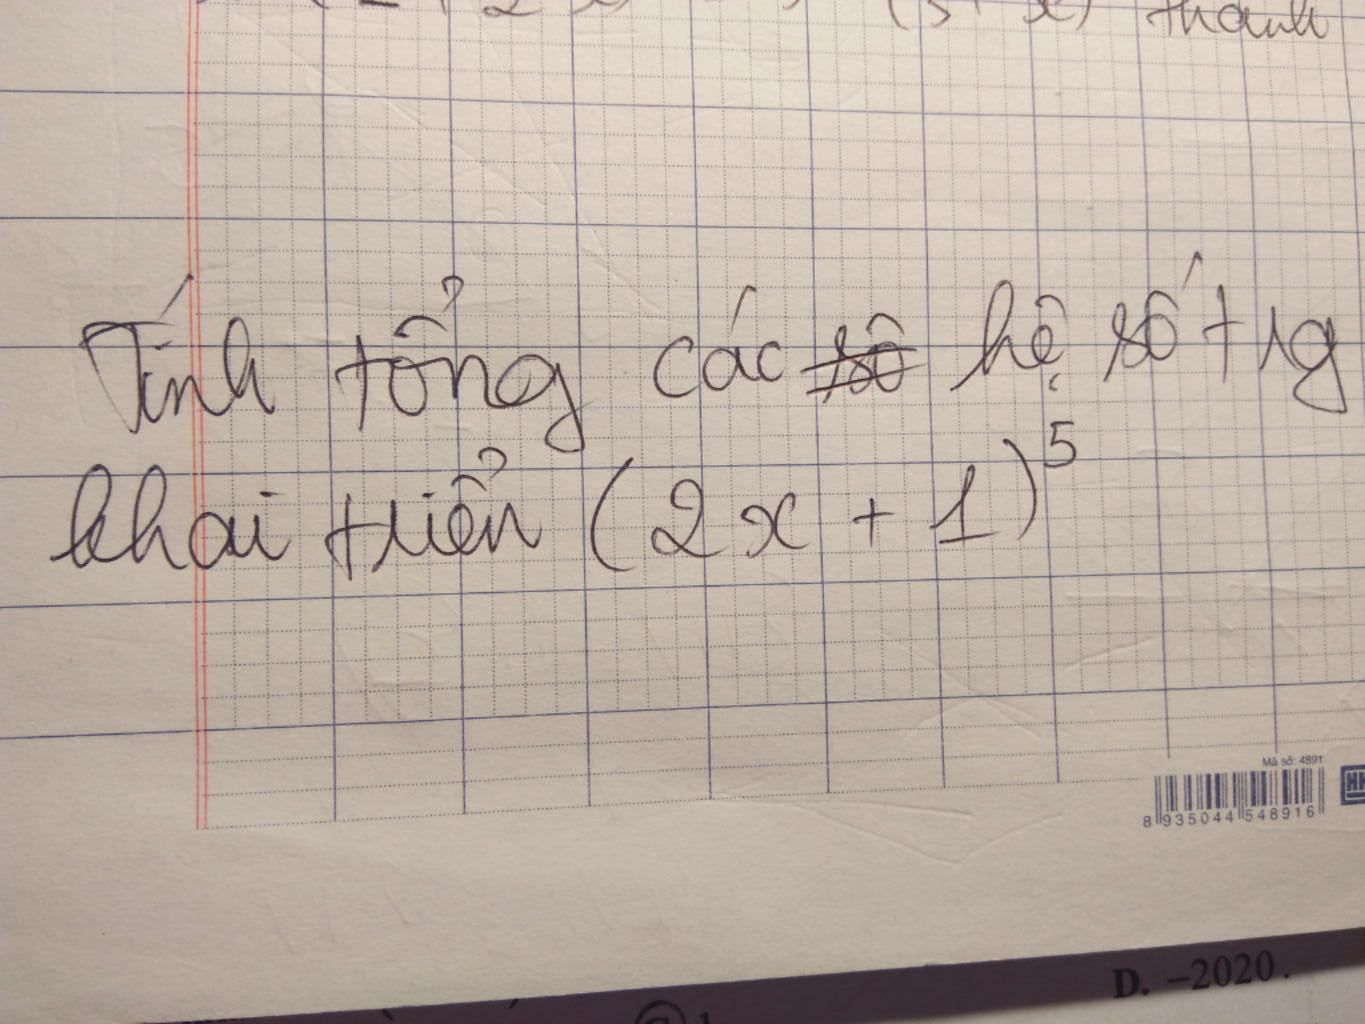 thành
Tính tổng các số hệ số trg
khai triển (2x + 1)^5
Mã số: 4891
8 935044 548916
D. -2020.